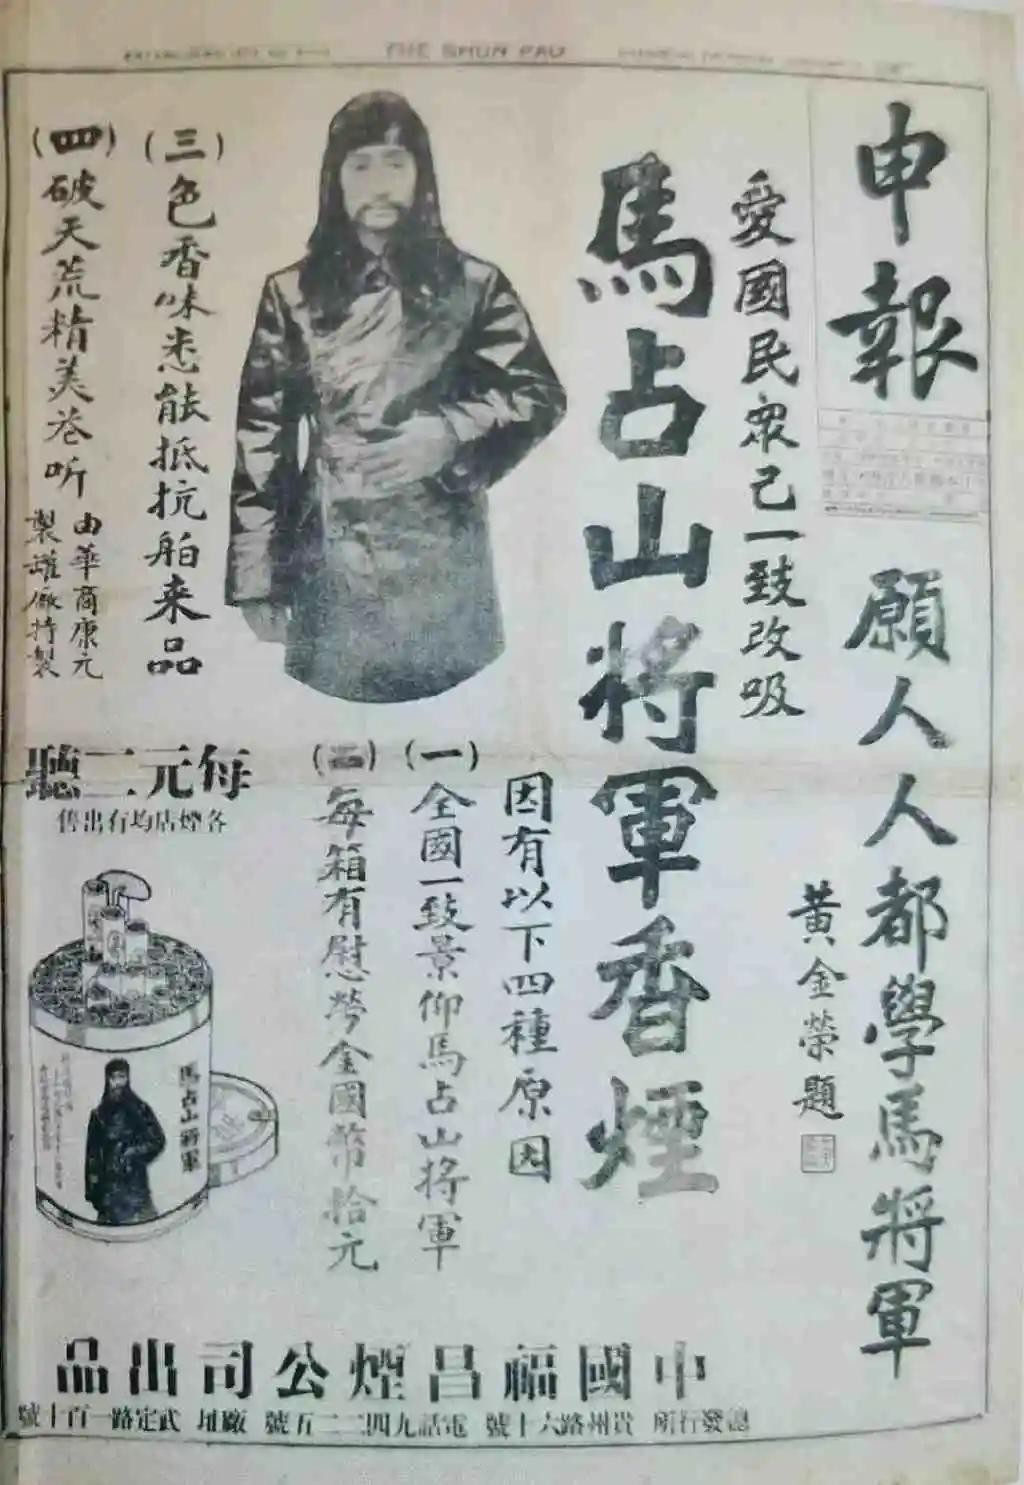 THE SHUN PAO
申報
願人人都學馬將軍
黃金榮題
愛國民眾已一致改吸
馬占山將軍香煙
因有以下四種原因
(一)全國一致景仰馬占山將軍
(二)每箱有慰勞金國幣拾元
(三)色香味悉能抵抗舶来品
(四)破天荒精美卷听
由華商康元
製罐廠特製
每元二聽
各煙店均有出售
馬占山將軍
中國福昌煙公司出品
總發行所 貴州路六十號 電話九四二二五號 廠址 武定路一百十號